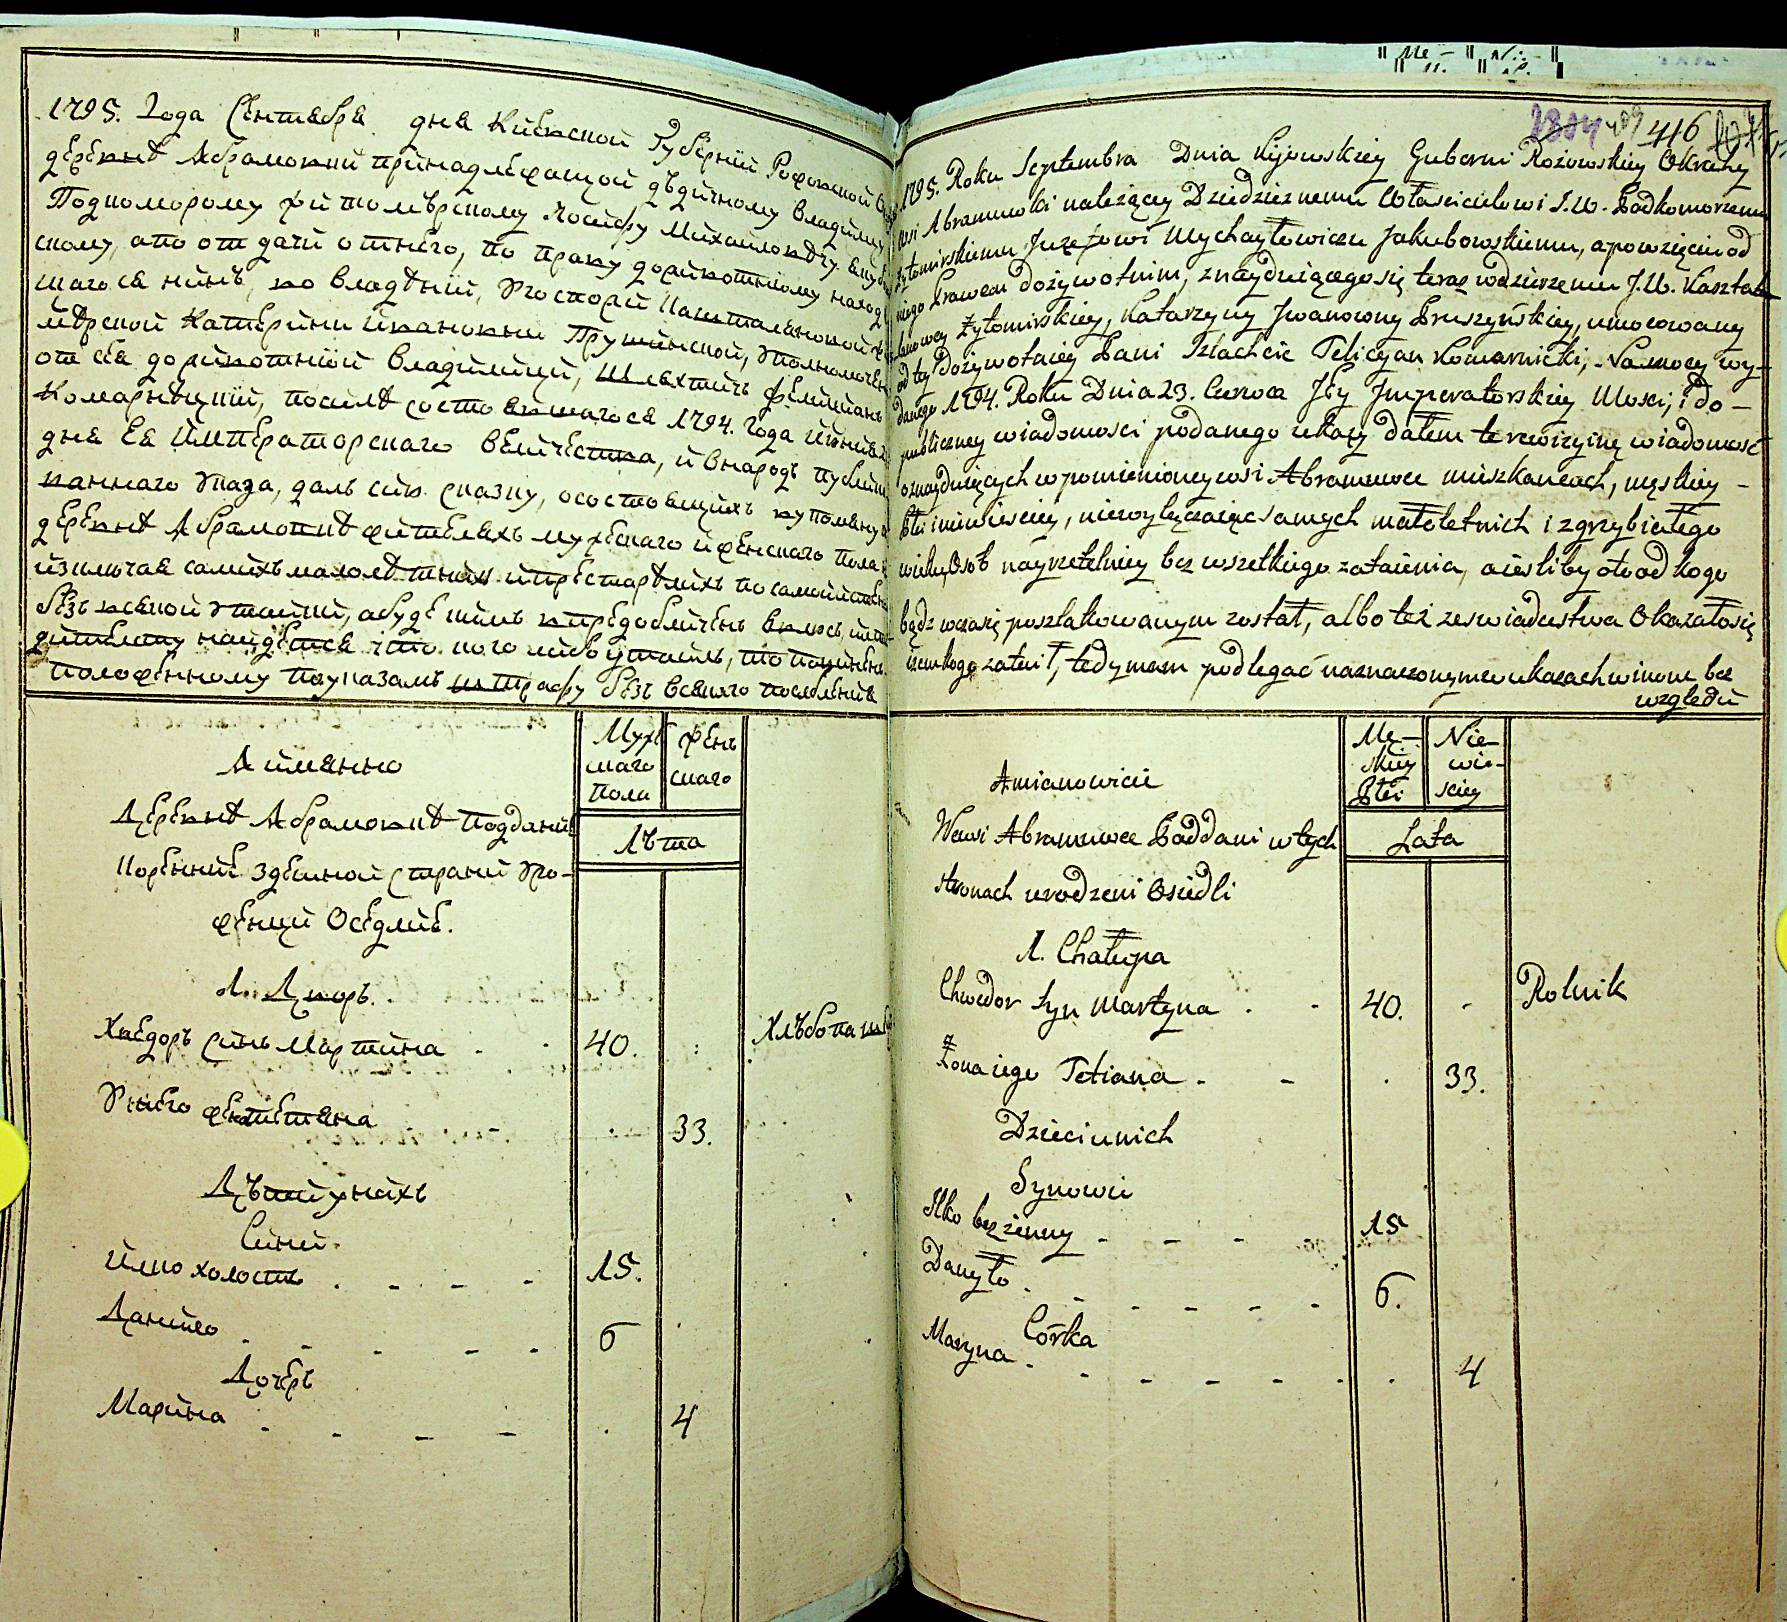 1795. Года Сентября дня Киевской Губернии Рожовской
деревне Абрамовки принадлежащой дедичному Владелцу
Подкоморому Житомерскому Иосифу Михайловичу
скому, а по отдачи отнего, по праву доживотнюму находя
шагося нине, во владении, Угоспожи Каштеляновой
мерской Катерини Ивановни Прушинской, уполномочен
от ея доживотний владелици, Шляхтичь Фелициянь
Комарницкий, посиле состоявшагося 1794. Года июния
дня Ея Императорскаго Величества, и внародъ публи
каннаго указа, даль сию сказку, осостоящихъ вупомяну
деревне Абрамовке жителяхъ мужескаго и женскаго пола
изключая самихъ малолетнихъ и престарелихъ посамой
безъ всякой утайки, а буде
найдется что кого либо утаиль, то повинен
положенному поуказамъ штрафу безъ всякаго послабления
Аимянно
Мужескаго пола
Женскаго
Деревне Абрамовке подданий
Лета
Коренние здешной Страни Уро-
женци Оседлие.
1. Дворъ.
Хведоръ Синь Мартина - - 40. Хлебопашець
Унего жена Тетяна - - 33.
Дети унихъ
Сини
Илко холость - - - - 15.
Данило - - - - 6
Дочерь
Марина - - - - 4
2804 409 416
1795. Roku Septembra Dnia Kijowskiey Guberni Rożowskiey Okrahy
wsi Abramowki należącey Dziedzicznemu Właścicielowi J.W. Podkomorzemu
Żytomirskiemu Juzefowi Mychayłowiczu Jakubowskiemu, a powzięciu od
niego Prawem dożywotnim, znayduiącego się teraz wdzierzeniu J.W. Kasztel
lanowey Żytomirskiey, Katarzyny Jwanowny Pruszyńskiey, umocowany
od tey Dożywotniey Pani Szlachcic Felicyan Komarnicki, Namocy wy-
danego 1794. Roku Dnia 23. Czerwca Jey Jmperatorskiey Mosci, i do -
publiczney wiadomosci podanego ukazu dałem te rewizyiną wiadomość
oznayduiących w pomienioney wsi Abramowce mieszkańcach, męskiey -
płci i niewiesciey, niewyłączaiąc samych małoletnich i zgrzybiałego
wieku Osob nayrzetelniey bez wszelkiego zataienia, a ieśliby oto od kogo
bądz wczasię poszlakowanym został, albo też zeświadectwa Okazałosię
iżem kogo zataił, tedy mam podlegać naznaczonym w ukazach winom bez
względu
Amianowicie
Mę-
skiey
Płci
Nie-
wie-
sciey
We wsi Abramowce Poddani w tych
Lata
stronach urodzeni Osiedli
1. Chałupa
Chwedor Syn Martyna - - 40. - Rolnik
Żona iego Tetiana - - . 33.
Dzieci u nich
Synowie
Ilko bezżenny - - - 15
Danyło - - - - - 6.
Córka
Maryna - - - - - - 4